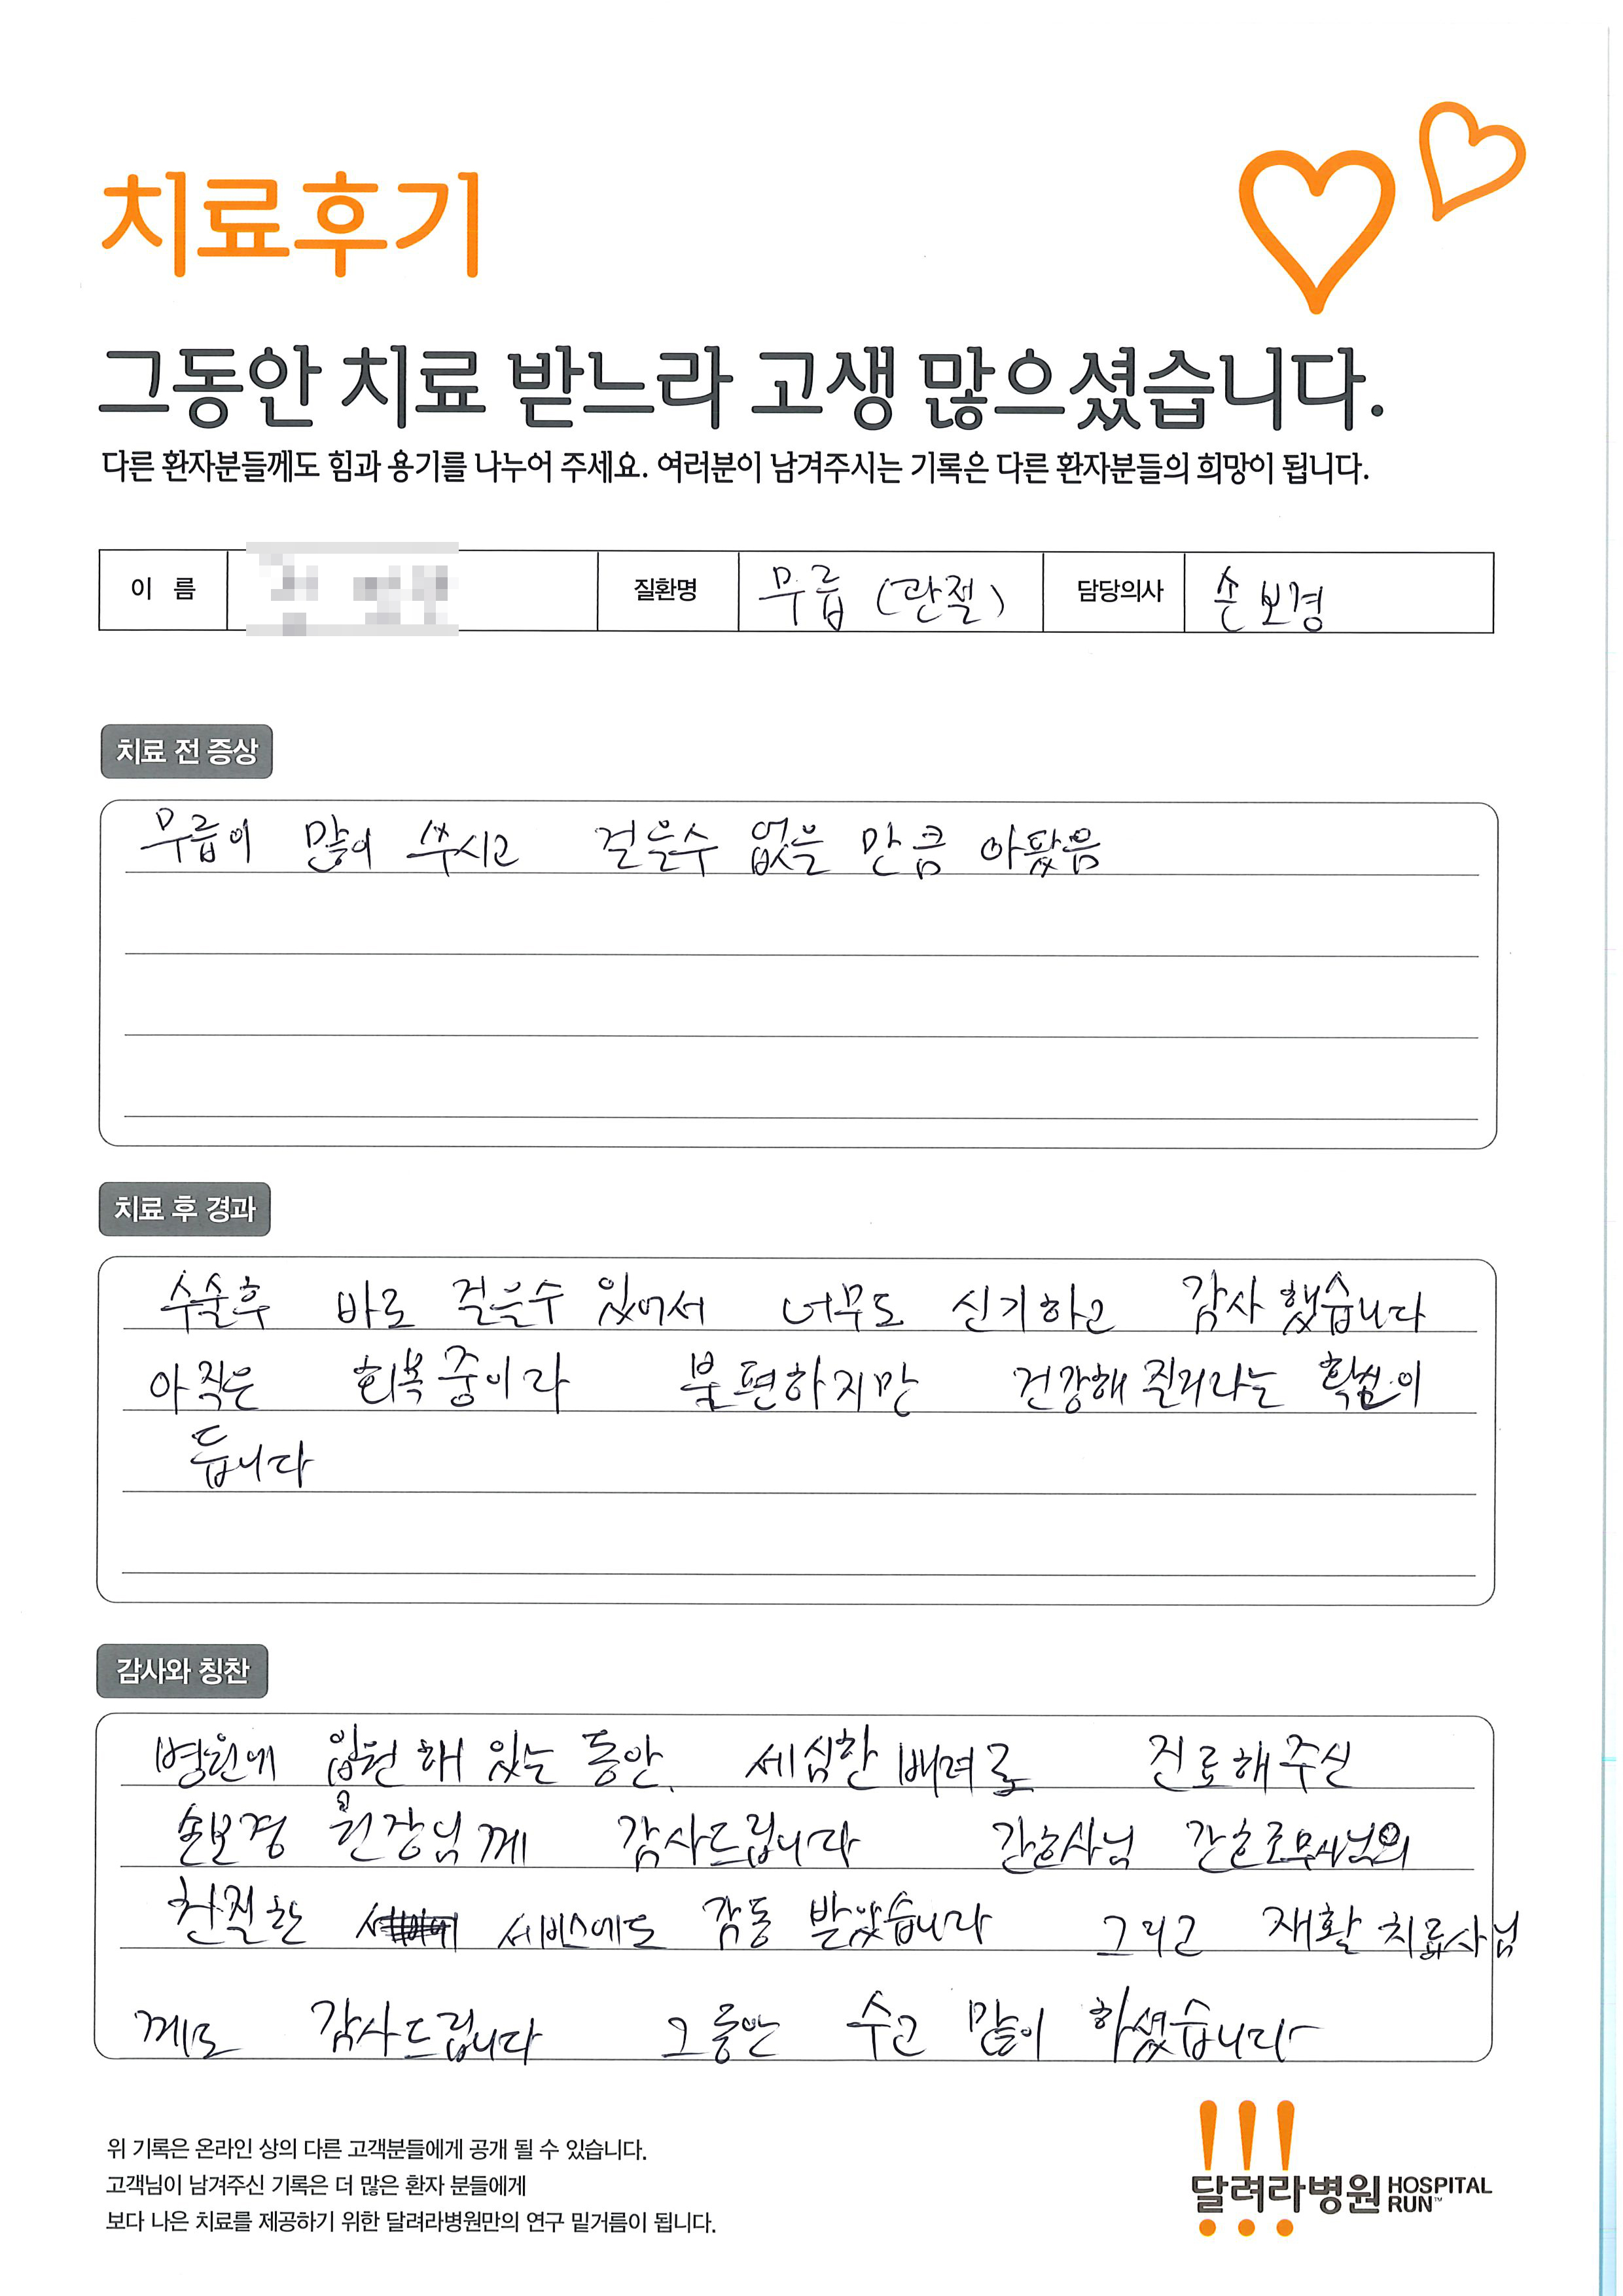 치료후기
그동안 치료 받느라 고생 많으셨습니다.
다른 환자분들께도 힘과 용기를 나누어 주세요. 여러분이 남겨주시는 기록은 다른 환자분들의 희망이 됩니다.
이 름 질환명 무릎 (관절) 담당의사 손보경
치료 전 증상
무릎이 많이 쑤시고 걸을수 없을 만큼 아팠음
치료 후 경과
수술후 바로 걸을수 있어서 너무도 신기하고 감사했습니다
아직은 회복중이라 불편하지만 건강해 질거라는 확신이
듭니다
감사와 칭찬
병원에 입원해 있는 동안. 세심한 배려로 진료해주신
손보경 원장님께 감사드립니다 간호사님 간호조무사님의
친절한 서비스에도 감동 받았습니다 그리고 재활 치료사님
께도 감사드립니다 그동안 수고 많이 하셨습니다
위 기록은 온라인 상의 다른 고객분들에게 공개 될 수 있습니다.
고객님이 남겨주신 기록은 더 많은 환자 분들에게
보다 나은 치료를 제공하기 위한 달려라병원만의 연구 밑거름이 됩니다.
달려라병원 HOSPITAL RUN™